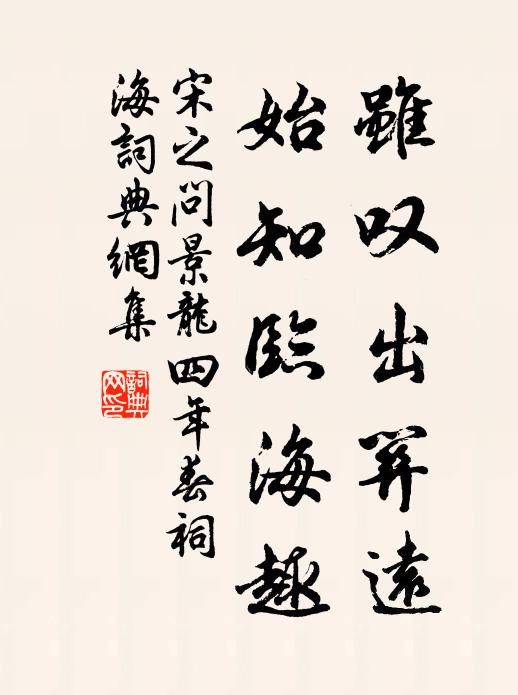 雖叹出關遠
始知臨海趣
宋之问景龍四年春祠
海詞典網集
詞典
网印